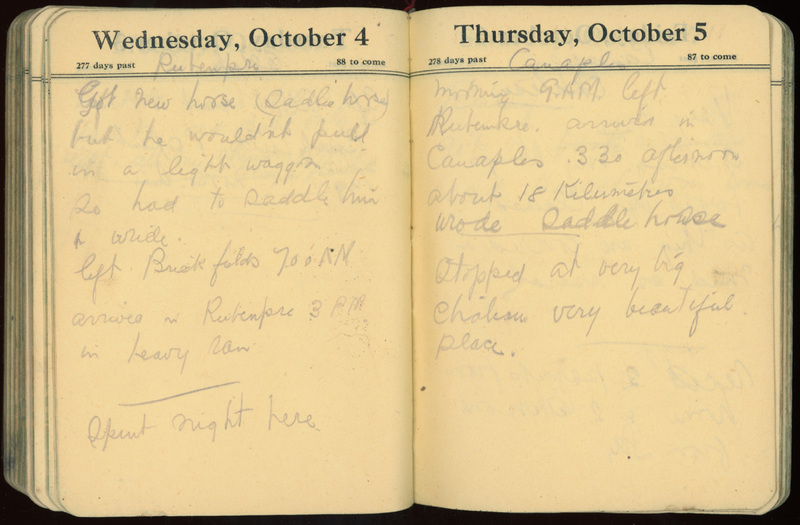 Wednesday, October 4
277 days past 88 to come
Rubempre
Got new horse (Saddle horse)
but he wouldn't pull
in a light waggon
So had to saddle him
& wride.
left Brickfields 7 o'c AM
arrived in Rubempre 3 PM
in heavy rain
Spent night here
Thursday, October 5
278 days past 87 to come
Canaples
morning 9 AM left
Rubempre. arrived in
Canaples 3.30 afternoon
about 18 Kilometres
wrode saddle horse
Stopped at very big
very beautiful.
place.